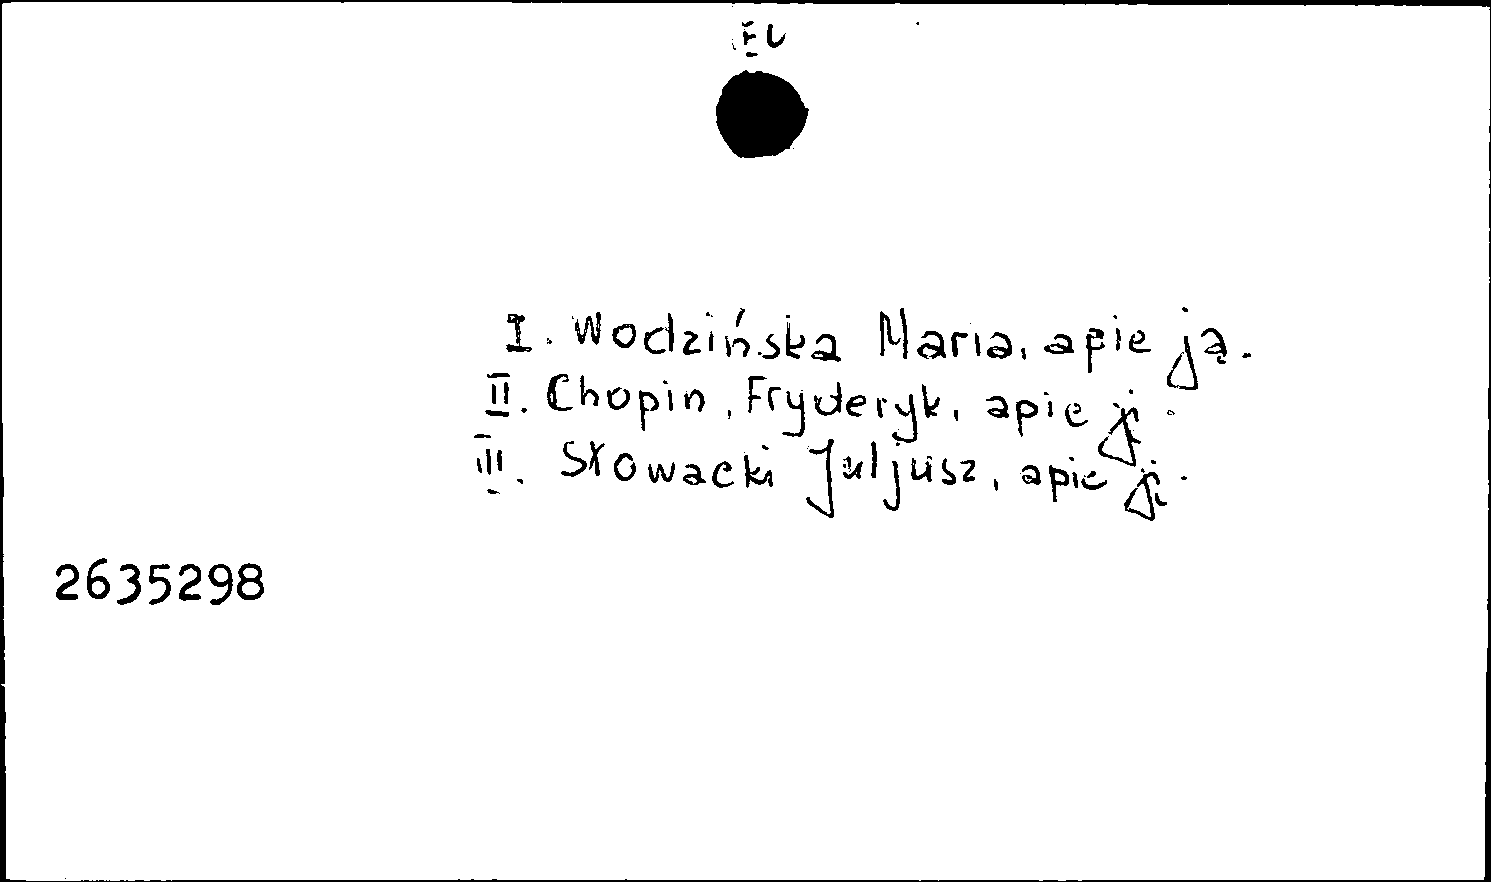 I. Wodzińska Maria, apie ją.
II. Chopin, Fryderyk, apie jį.
III. Słowacki Juljusz, apie jį.
2635298